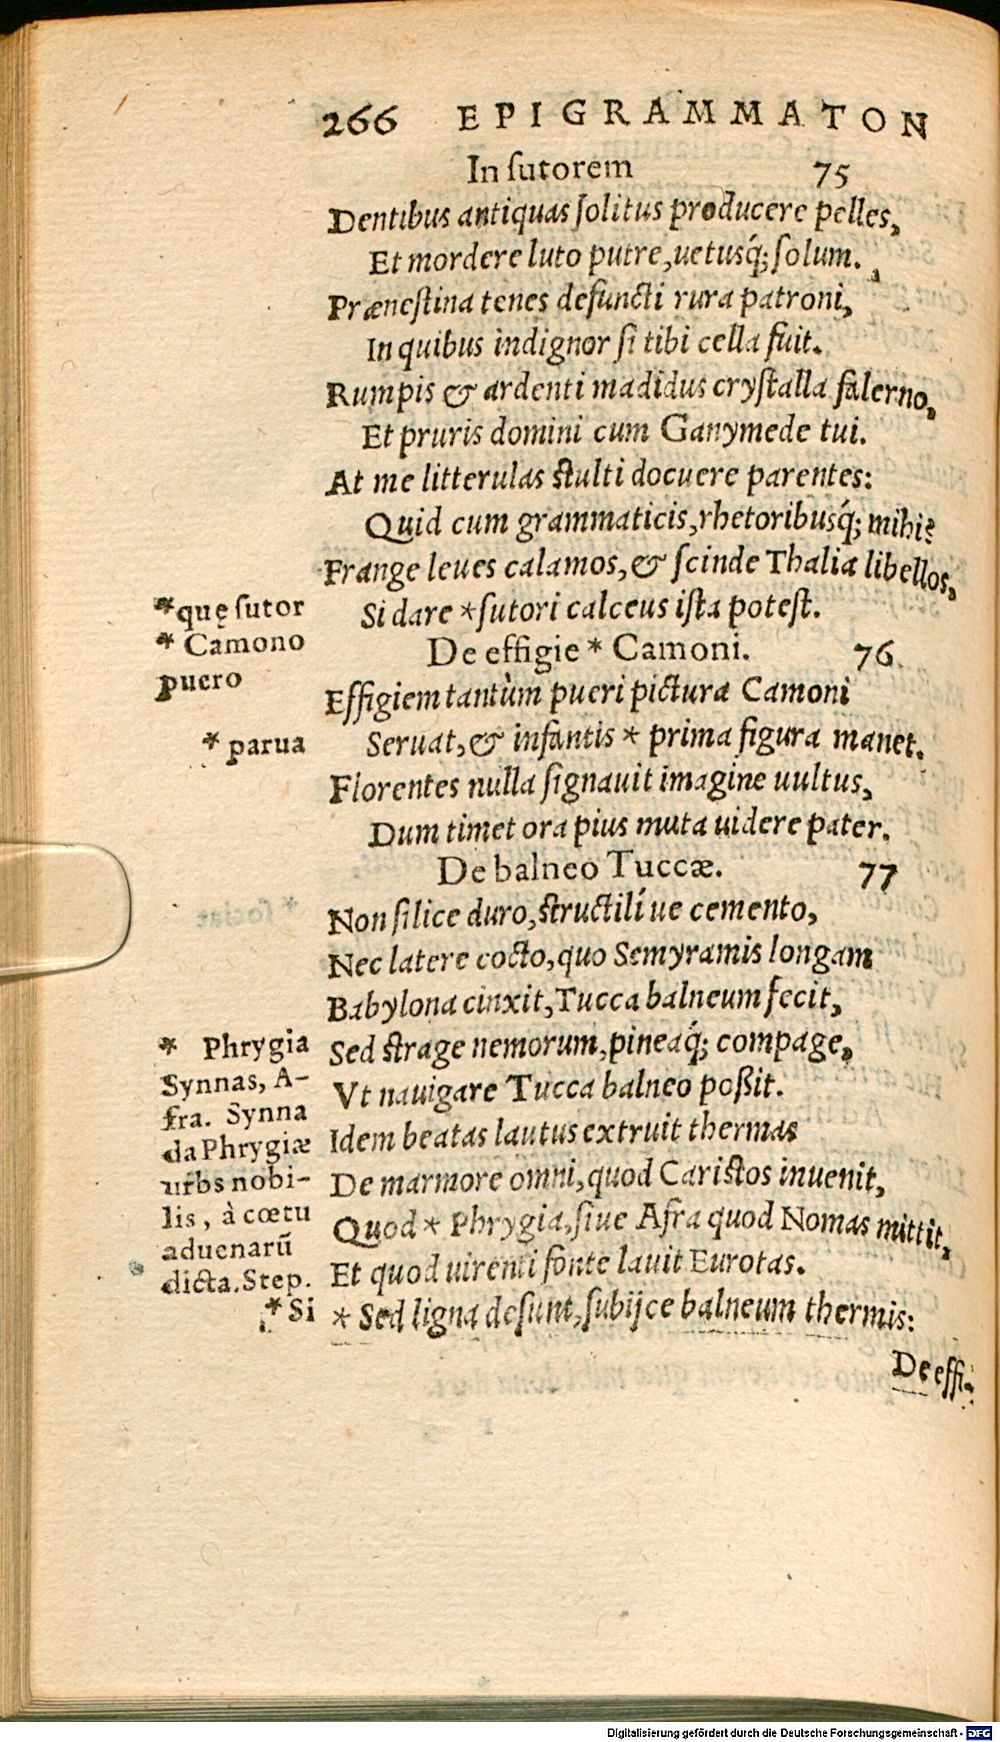 266 EPIGRAMMATON
In ſutorem 75
Dentibus antiquas ſolitus producere pelles,
Et mordere luto putre, uetusq́; ſolum.
Præneſtina tenes defuncti rura patroni,
In quibus indignor ſi tibi cella fuit.
Rumpis & ardenti madidus cryſtalla falerno,
Et pruris domini cum Ganymede tui.
At me litterulas ſtulti docuere parentes:
Quid cum grammaticis, rhetoribusq́; mihi?
Frange leues calamos, & ſcinde Thalia libellos,
*quę ſutor
Si dare *ſutori calceus iſta poteſt.
* Camono
puero
De effigie * Camoni. 76
Effigiem tantùm pueri pictura Camoni
* parua
Seruat, & infantis * prima figura manet.
Florentes nulla ſignauit imagine uultus,
Dum timet ora pius muta uidere pater.
De balneo Tuccæ. 77
Non ſilice duro, ſtructilí ue cemento,
Nec latere cocto, quo Semyramis longam
Babylona cinxit, Tucca balneum fecit,
Sed ſtrage nemorum, pineaq́; compage,
Vt nauigare Tucca balneo poßit.
Idem beatas lautus extruit thermas
De marmore omni, quod Cariſtos inuenit,
Quod * Phrygia, ſiue Afra quod Nomas mittit,
Et quod uirenti fonte lauit Eurotas.
* Sed ligna deſunt, ſubijce balneum thermis:
* Phrygia
Synnas, A-
fra. Synna
da Phrygiæ
urbs nobi-
lis, à cœtu
aduenarũ
dicta. Step.
* Si
De effi-
Digitalisierung gefördert durch die Deutsche Forschungsgemeinschaft - DFG